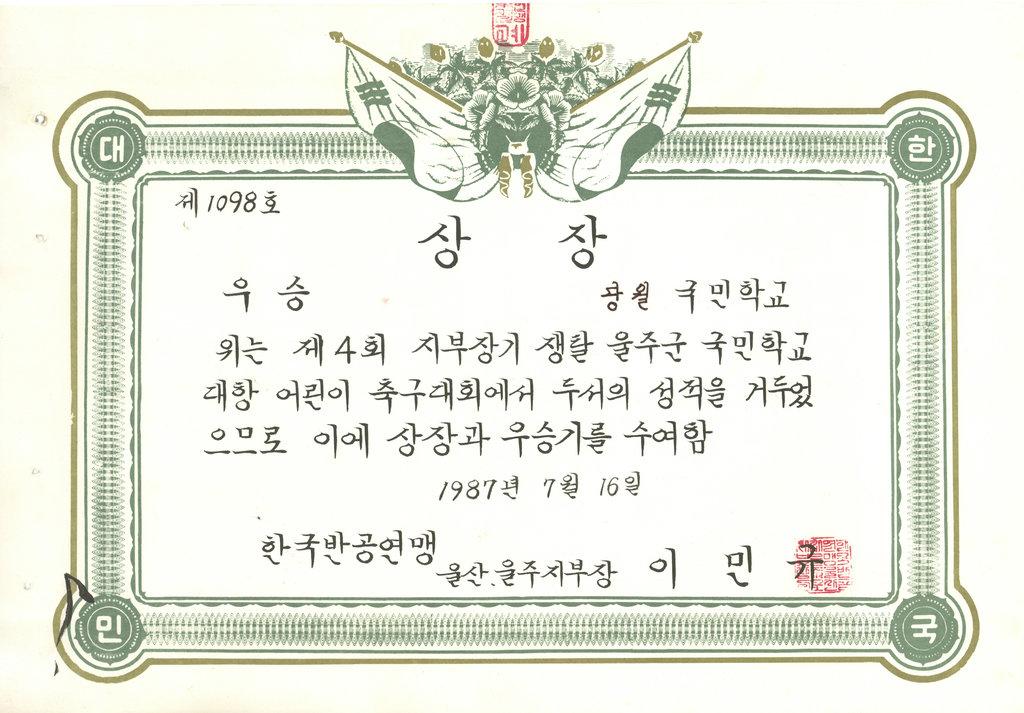 대 한
제 1098 호
상 장
우 승
국민학교
위는 제 4 회 지부장기 쟁탈 울주군 국민학교
대항 어린이 축구대회에서 두서의 성적을 거두었
으므로 이에 상장과 우승기를 수여함
1987년 7월 16일
한국반공연맹
울산.울주지부장 이 민 규
민 국